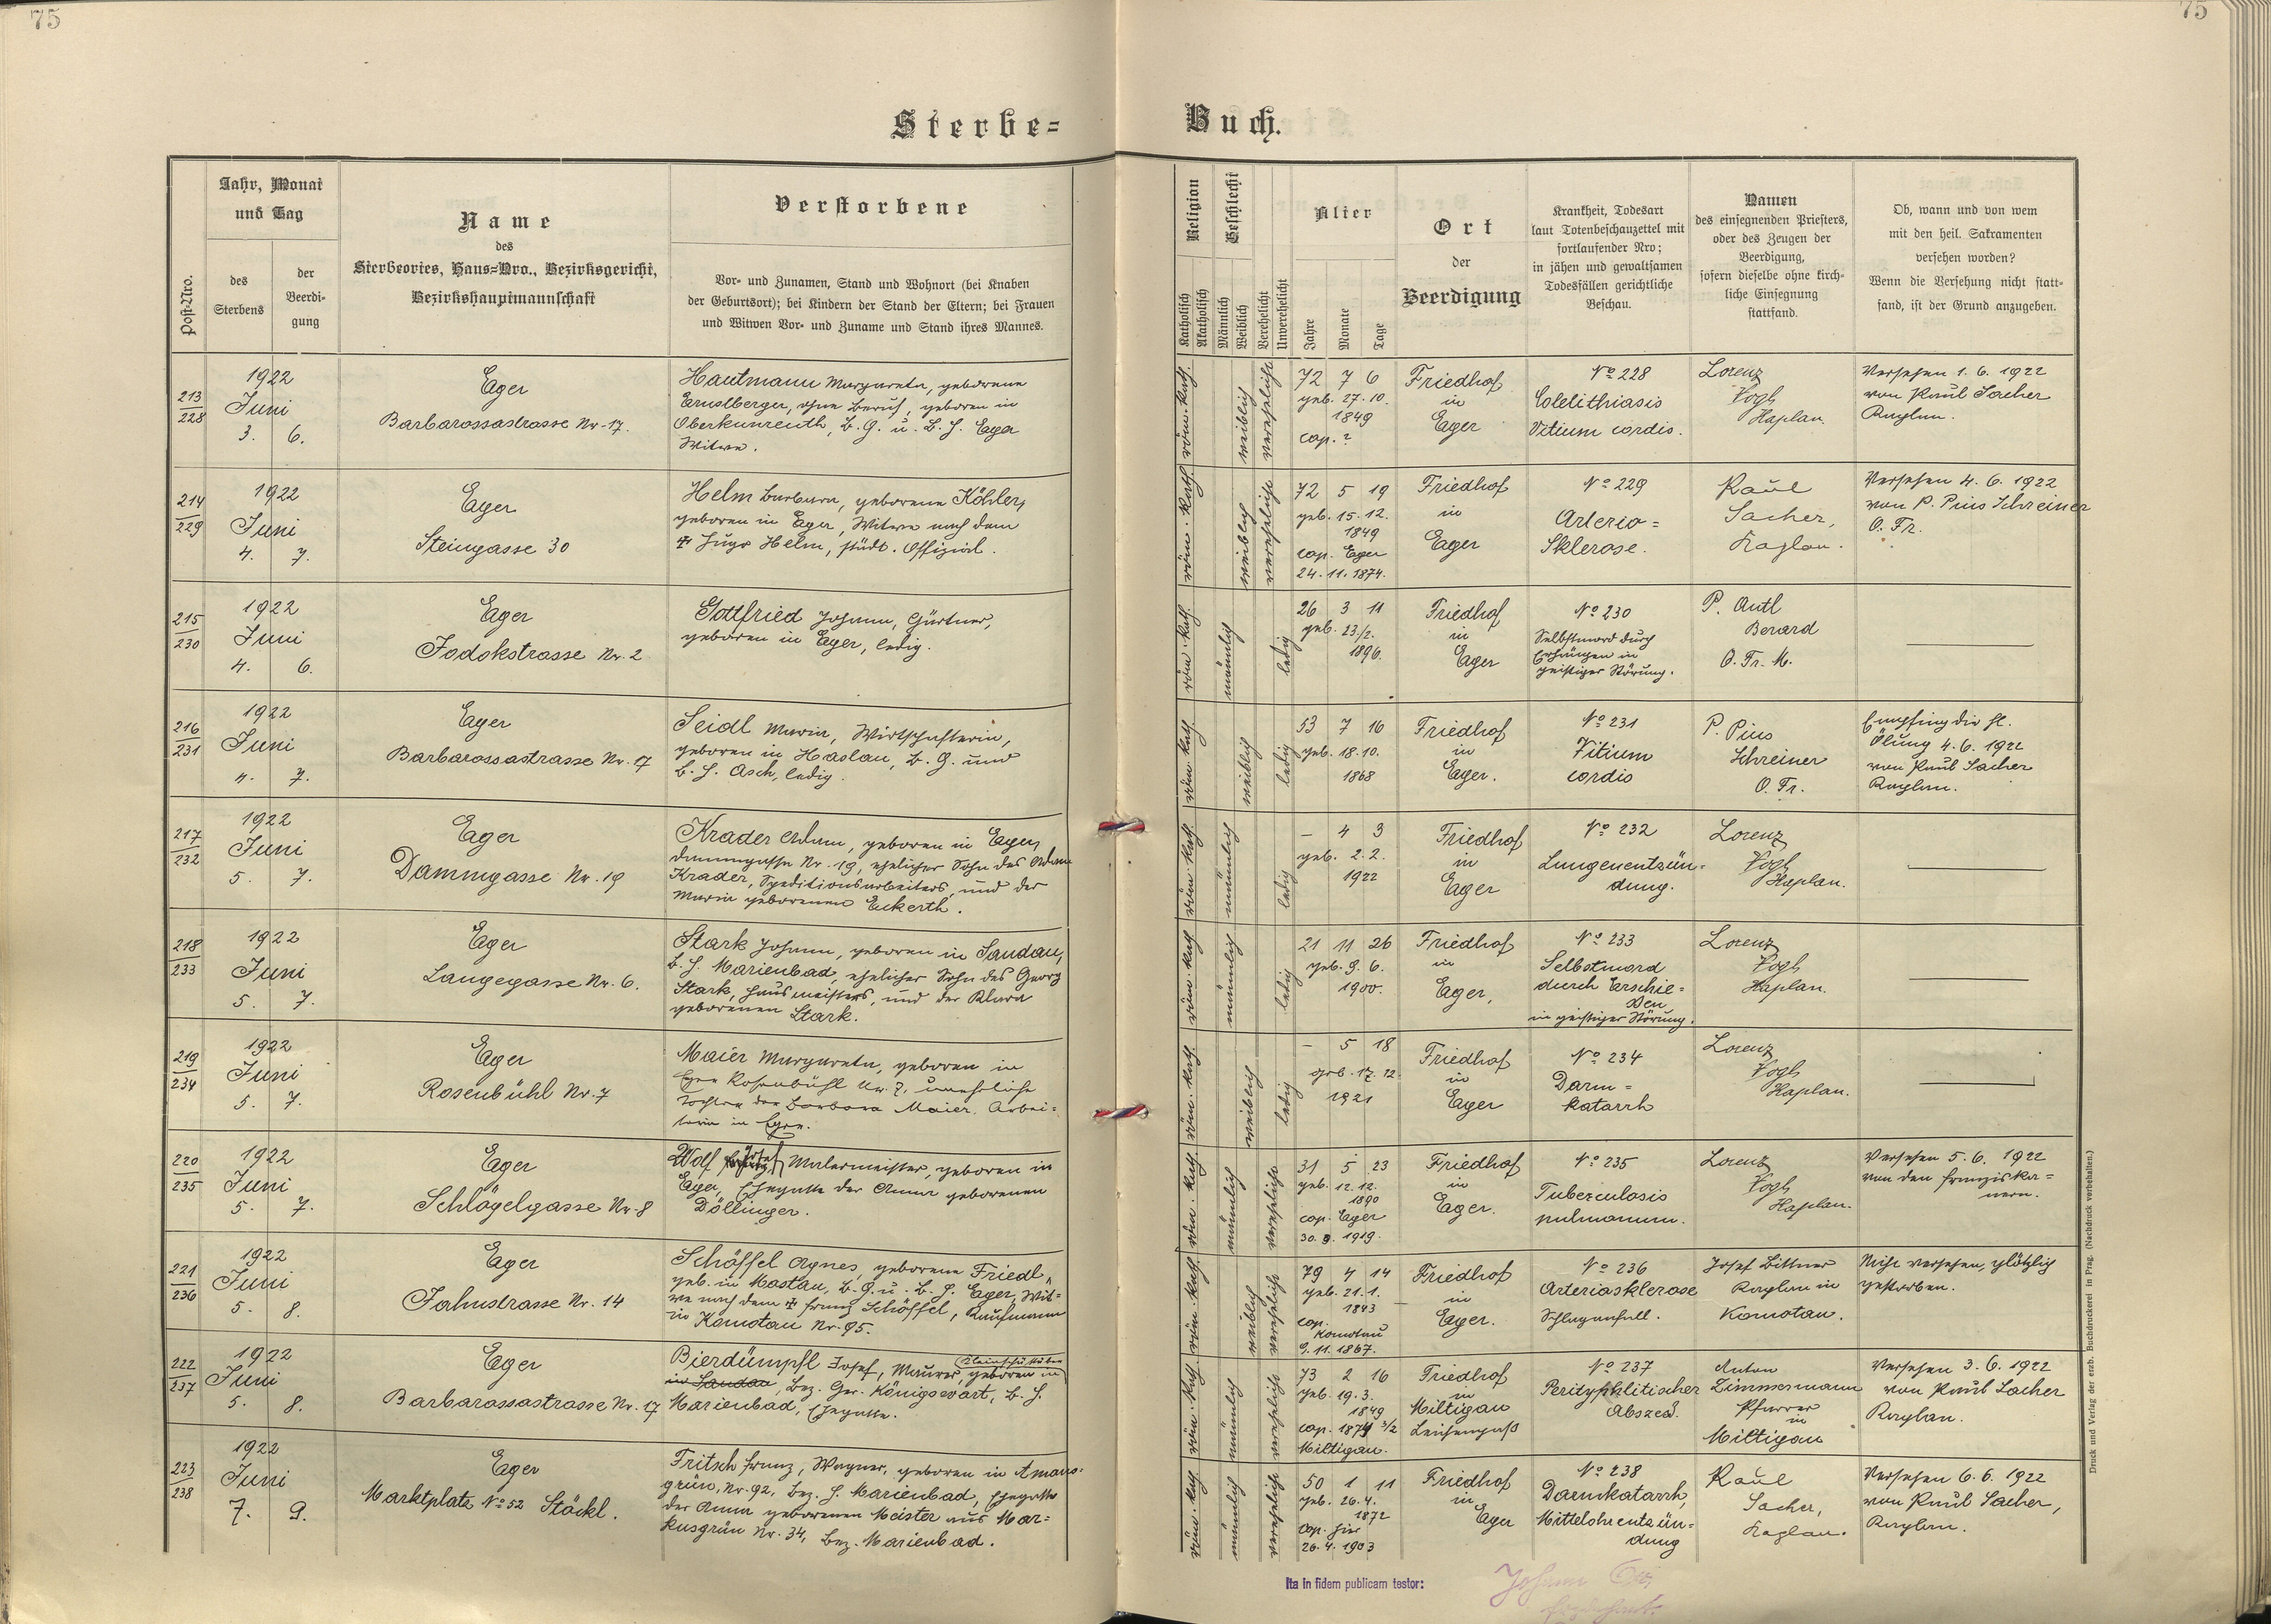 75
75
Sterbe=
Buch.
Post-Nro.
Jahr, Monat
und Tag
des
Sterbens
der
Beerdi-
gung
Name
des
Sterbeortes, Haus=Nro., Bezirksgericht,
Bezirkshauptmannschaft
Verstorbene
Vor- und Zunamen, Stand und Wohnort (bei Knaben
der Geburtsort); bei Kindern der Stand der Eltern; bei Frauen
und Witwen Vor- und Zuname und Stand ihres Mannes.
Religion
Katholisch
Akatholisch
Geschlecht
Männlich
Weiblich
Verehelicht
Unverehelicht
Alter
Jahre
Monate
Tage
Ort
der
Beerdigung
Krankheit, Todesart
laut Totenbeschauzettel mit
fortlaufender Nro;
in jähen und gewaltsamen
Todesfällen gerichtliche
Beschau.
Namen
des einsegnenden Priesters,
oder des Zeugen der
Beerdigung,
sofern dieselbe ohne kirch-
liche Einsegnung
stattfand.
Ob, wann und von wem
mit den heil. Sakramenten
versehen worden?
Wenn die Versehung nicht statt-
fand, ist der Grund anzugeben.
213
228
1922
Juni
3. 6.
Eger
Barbarossastrasse Nr. 17.
Hautmann Margareta, geborene
Ernstberger, ohne Beruf, geboren in
Oberkunreuth, B. G. u. B. H. Eger
Witwe.
röm. kath.
weiblich
verehelicht
72 7 6
geb. 27. 10.
1849
cop. ?
Friedhof
in
Eger
No 228
Colelithiasis
Vitium cordis.
Lorenz
Vogl
Kaplan.
Versehen 1. 6. 1922
von Karl Sacher
Kaplan.
214
229
1922
Juni
4. 7.
Eger
Steingasse 30
Helm Barbara, geborene Köhler,
geboren in Eger, Witwe nach dem
✠ Hugo Helm, städt. Offizial.
röm. kath.
weiblich
verehelicht
72 5 19
geb. 15. 12.
1849
cop. Eger
24. 11. 1874.
Friedhof
in
Eger
No 229
Arterio=
Sklerose.
Karl
Sacher,
Kaplan.
Versehen 4. 6. 1922
von P. Pius Schreiner
O. Fr.
215
230
1922
Juni
4. 6.
Eger
Jodokstrasse Nr. 2
Gottfried Johann, Gärtner,
geboren in Eger, ledig.
röm. kath.
männlich
ledig
26 3 11
geb. 23/2.
1896.
Friedhof
in
Eger
No 230
Selbstmord durch
Erhängen in
geistiger Störung.
P. Antl
Berard
O. Fr. M.
216
231
1922
Juni
4. 7.
Eger
Barbarossastrasse Nr. 17
Seidl Maria, Wirtschafterin,
geboren in Haslau, B. G. und
B. H. Asch, ledig.
röm. kath.
weiblich
ledig
53 7 16
geb. 18. 10.
1868
Friedhof
in
Eger.
No 231
Vitium
cordis
P. Pius
Schreiner
O. Fr.
Empfing die hl.
Ölung 4. 6. 1922
von Karl Sacher
Kaplan.
217
232
1922
Juni
5. 7.
Eger
Dammgasse Nr. 19
Krader Adam, geboren in Eger,
Dammgasse Nr. 19, ehelicher Sohn des Adam
Krader, Speditionsarbeiters, und der
Maria geborenen Eckerth.
röm. kath.
männlich
ledig
– 4 3
geb. 2. 2.
1922
Friedhof
in
Eger
No 232
Lungenentzün-
dung.
Lorenz
Vogl
Kaplan.
218
233
1922
Juni
5. 7.
Eger
Langegasse Nr. 6.
Stark Johann, geboren in Sandau,
B. H. Marienbad, ehelicher Sohn des Georg
Stark, Hausmeisters, und der Klara
geborenen Stark.
röm. kath.
männlich
ledig
21 11 26
geb. 9. 6.
1900.
Friedhof
in
Eger,
No 233
Selbstmord
durch Erschie=
ßen
in geistiger Störung.
Lorenz
Vogl
Kaplan.
219
234
1922
Juni
5. 7.
Eger
Rosenbühl Nr. 7
Maier Margareta, geboren in
Eger Rosenbühl Nr. 7, uneheliche
Tochter der Barbara Maier, Arbei=
terin in Eger.
röm. kath.
weiblich
ledig
– 5 18
geb. 17. 12.
1921
Friedhof
in
Eger
No 234
Darm=
katarrh
Lorenz
Vogl
Kaplan.
220
235
1922
Juni
5. 7.
Eger
Schlögelgasse Nr. 8
Wolf Josef Malermeister, geboren in
Eger, Ehegatte der Anna geborenen
Döllinger.
röm. kath.
männlich
verehelicht
31 5 23
geb. 12. 12.
1890
cop. Eger
30. 9. 1919.
Friedhof
in
Eger.
No 235
Tuberculosis
pulmonum.
Lorenz
Vogl
Kaplan.
Versehen 5. 6. 1922
von den Franziska=
nern.
221
236
1922
Juni
5. 8.
Eger
Jahnstrasse Nr. 14
Schöffel Agnes, geborene Friedl,
geb. in Mostau, B. G. u. B. H. Eger, Wit=
we nach dem ✠ Franz Schöffel, Kaufmann
in Komotau Nr. 95.
röm. kath.
weiblich
verehelicht
79 4 14
geb. 21. 1.
1843
cop.
Komotau
9. 11. 1867.
Friedhof
in
Eger.
No 236
Arteriasklerose
Schlaganfall.
Josef Bittner
Kaplan in
Komotau.
Nicht versehen, plötzlich
gestorben.
222
237
1922
Juni
5. 8.
Eger
Barbarossastrasse Nr. 17
Bierdümpfl Josef, Maurer, geboren in
in Sandau, Bez. Ger. Königswart, B. H.
Marienbad, Ehegatte.
röm. kath.
männlich
verehelicht
73 2 16
geb. 19. 3.
1849
cop. 1874 3/2
Miltigau.
Friedhof
in
Miltigau
Leichenpaß
No 237
Perityphlitischer
Abszeß.
Anton
Zimmermann
Pfarrer
in
Miltigau
Versehen 3. 6. 1922
von Karl Sacher
Kaplan.
223
238
1922
Juni
7. 9.
Eger
Marktplatz No 52 Stöckl.
Fritsch Franz, Wagner, geboren in Amons-
grün, Nr. 92, Bez. H. Marienbad, Ehegatte
der Anna geborenen Meister aus Mar=
kusgrün Nr. 34, Bez. Marienbad.
röm. kath.
männlich
verehelicht
50 1 11
geb. 26. 4.
1872
cop. hier
26. 4. 1903
Friedhof
in
Eger
No 238
Darmkatarrh,
Mittelohrentzün=
dung
Karl
Sacher,
Kaplan.
Versehen 6. 6. 1922
von Karl Sacher,
Kaplan.
Ita in fidem publicam testor:
Johann
Druck und Verlag der erzb. Buchdruckerei in Prag. (Nachdruck vorbehalten.)